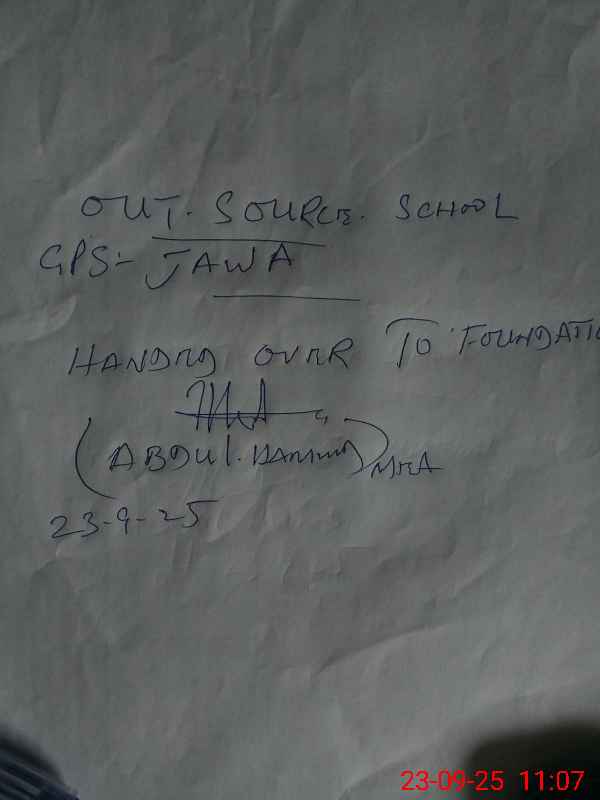 OUT. SOURCE. SCHOOL
GPS- JAWA
HANDED OVER TO FOUNDATIO
(ABDUL. ) MEA
23-9-25
23-09-25 11:07